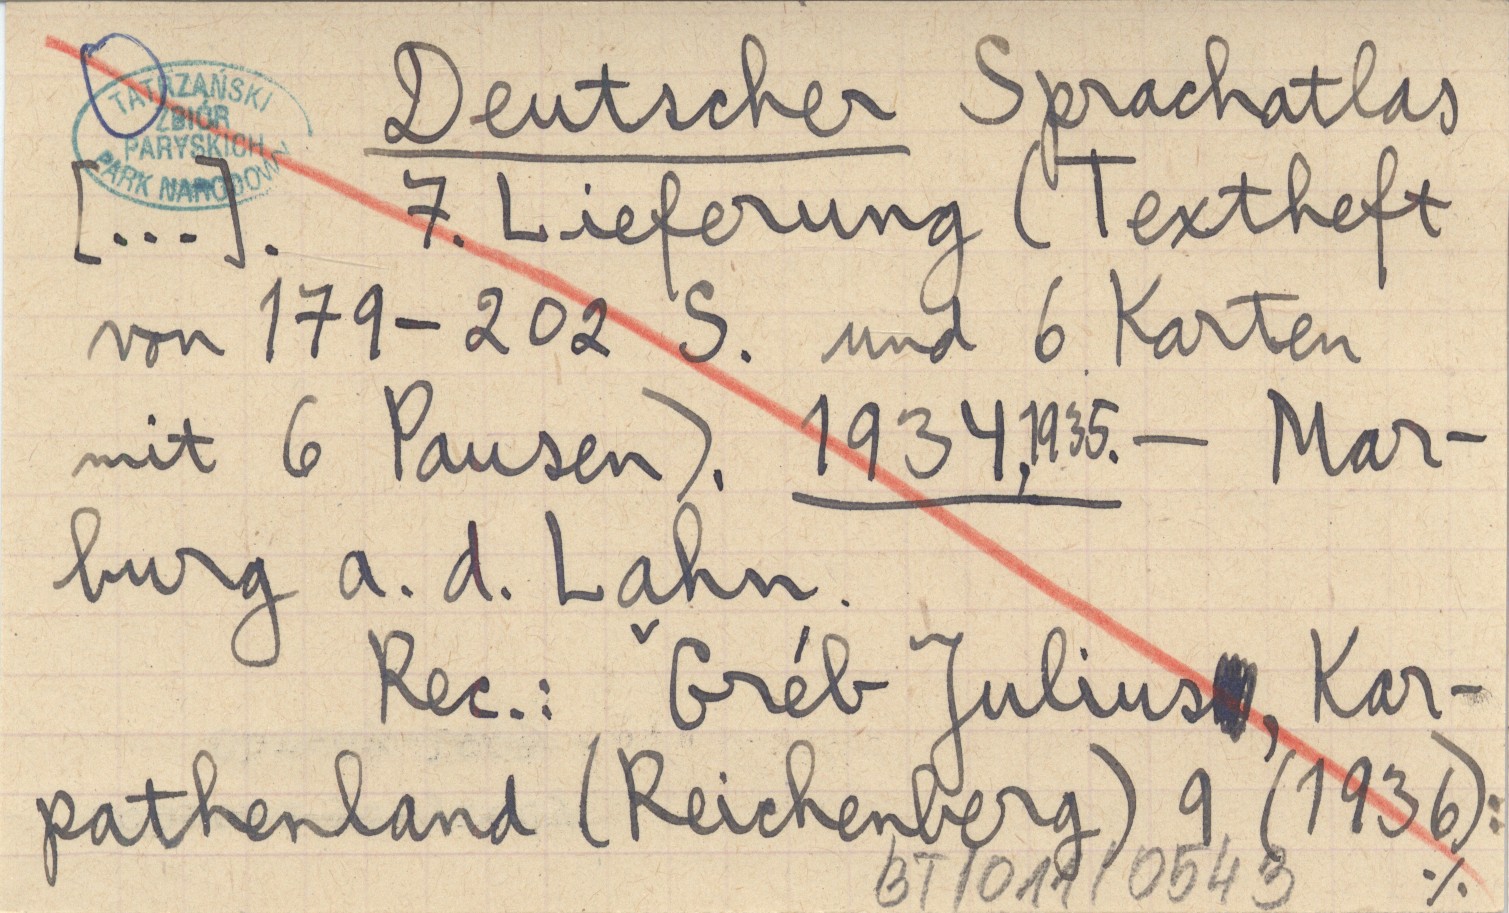 TATRZAŃSKI
ZBIÓR
PARYSKICH
PARK NARODOWY
Deutscher Sprachatlas
[...]. 7. Lieferung (Textheft
von 179-202 S. und 6 Karten
mit 6 Pausen). 1934,1935. — Mar-
burg a. d. Lahn.
Rec.: Gréb Julius, Kar-
pathenland (Reichenberg) 9 (1936):
./.
BT/011/0543